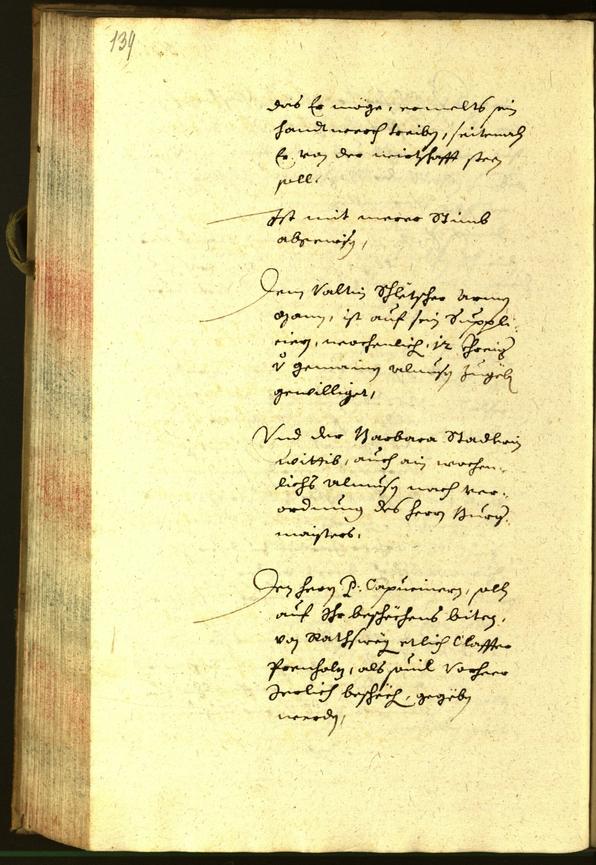 134
das Er möge, ermelts sein
handtwerch treiben, seitemal
Er von der wirtschafft steen
soll.
Ist mit merer Stimb
abgewisen,
Dem Valtin Schletscher armen
Mann, ist auf sein Suppli-
cieren, wochenlich 12 Kreizer
gemainen almusen zugeben
gewilliget,
Und der Barbara Stadlerin
wittib, auch ain wochen-
lichs almusen nach ver-
ordnung des herrn Burger-
maisters,
Den herrn P: Capucinern, solle
auf Ihr beschehens biten,
von Rathswegen etlich Claffter
Prenholz, als vorher
Järlich beschehen, gegeben
werden,